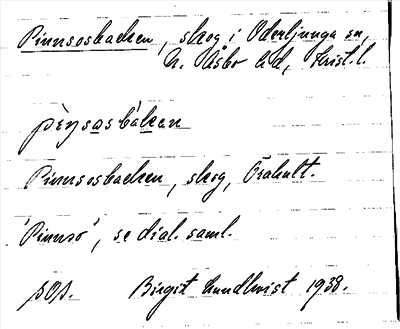 Pinnsosbacken, skog i Oderljunga sn,
N. Åsbo hd, Krist. l.
pènsosbàkan
Pinnsosbacken, skog, Örahult.
'Pinnso', se dial. saml.
sos. Birgit Lundkvist 1938.